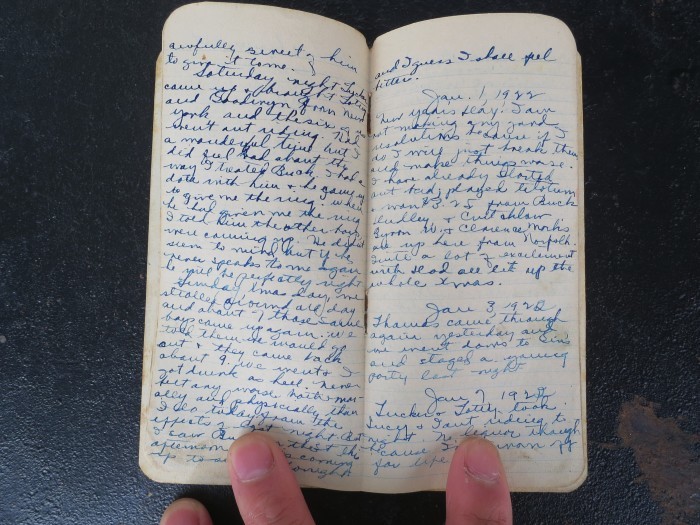 awfully sweet of him
to give it to me.
Saturday night
came up & brought
and from New
York and the six of us
went out riding. Had
a wonderful time but I
did feel bad about the
way I treated Buck. I had a
date with him & he came up
to give me the ring. When
he had given me the ring
I told him the other boys
were coming up. He didn't
seem to mind but if he
never speaks to me again
he will be perfectly right
Sunday was day, we
around all day
and about 7 those same
boys came up again. We
told them we would go
out & they came back
about 9. We went & I
got drunk as hell. Never
felt any worse both mor-
ally and physically than
I do today from the
effects of last night. But
I saw Buck this
afternoon & he's coming
up to tonight
and I guess I shall feel
better.
Jan. 1, 1922
New years day! I am
not making any good
resolutions because if I
do I will just break them
and make things worse.
I have already started
out bad, played
won $3.25 from Buck
Dudley & Cutchlow.
Byron W. & Clarence Marks
are up here from Norfolk.
Quite a lot of excitement
with us all let up the
whole xmas.
Jan 3, 1922
Thomas came through
again yesterday and
we went down to
and staged a
party last night
Jan 7, 1922
Tucker & Letty took
Lucy & I out riding to-
night. No liquor though
'cause I've sworn off
for life